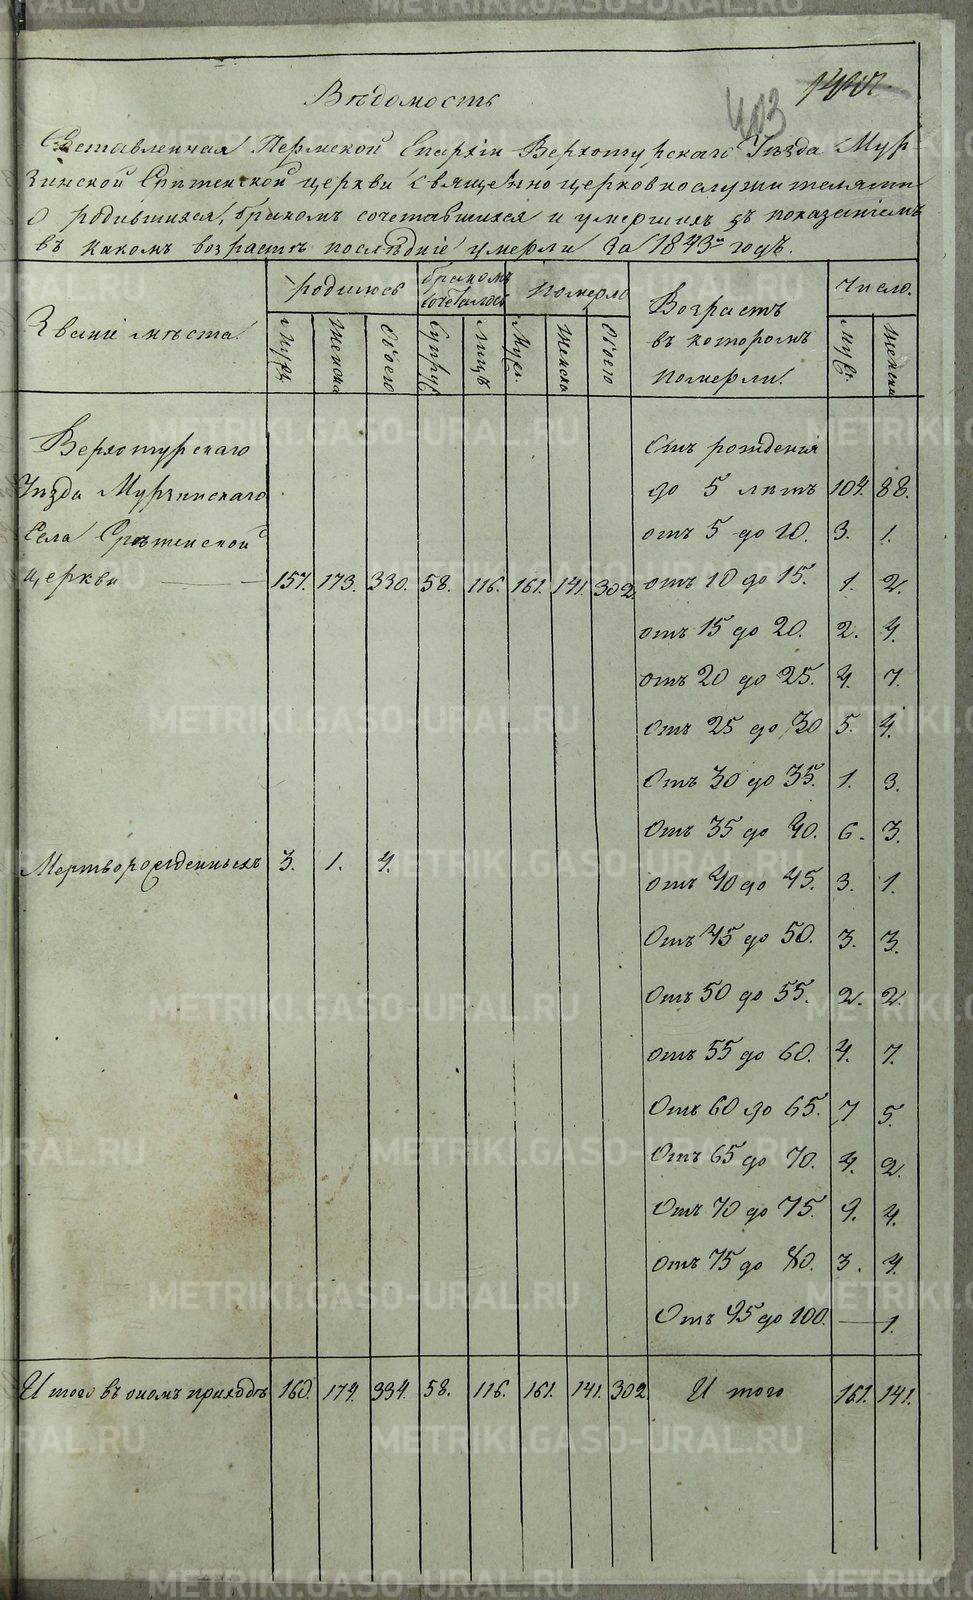 403
Вѣдомость
Составленная Пермской Епархіи Верхотурскаго Уѣзда Мур-
зинской Срѣтенской церкви священноцерковнослужителями
о родившихся, бракомъ сочетавшихся и умершихъ съ показаніемъ
въ какомъ возрастѣ послѣдніе умерли за 1843й годъ.
Званіе мѣста. Родилось Бракомъ сочеталось Померло Возрастъ въ которомъ померли. Число.
Муж. Женска Обоего Супруж. Лицъ Муж. Женска Обоего Муж. Женска
Верхотурскаго Отъ рожденія
Уѣзда Мурзинскаго до 5 лѣтъ 104. 88.
Села Срѣтенской отъ 5 до 10. 3. 1.
церкви 157. 173. 330. 58. 116. 161. 141. 302. отъ 10 до 15. 1. 2.
отъ 15 до 20. 2. 4.
отъ 20 до 25. 4. 7.
Отъ 25 до 30 5. 4.
Отъ 30 до 35. 1. 3.
Отъ 35 до 40. 6. 3.
Мертворожденныхъ 3. 1. 4.
отъ 40 до 45. 3. 1.
Отъ 45 до 50. 3. 3.
Отъ 50 до 55. 2. 2.
отъ 55 до 60. 4. 7.
Отъ 60 до 65. 7 5.
Отъ 65 до 70. 4. 2.
Отъ 70 до 75. 9. 4.
отъ 75 до 80. 3. 4.
Отъ 95 до 100. — 1.
Итого въ ономъ приходѣ 160. 174. 334. 58. 116. 161. 141. 302. Итого 161. 141.
METRIKI.GASO-URAL.RU